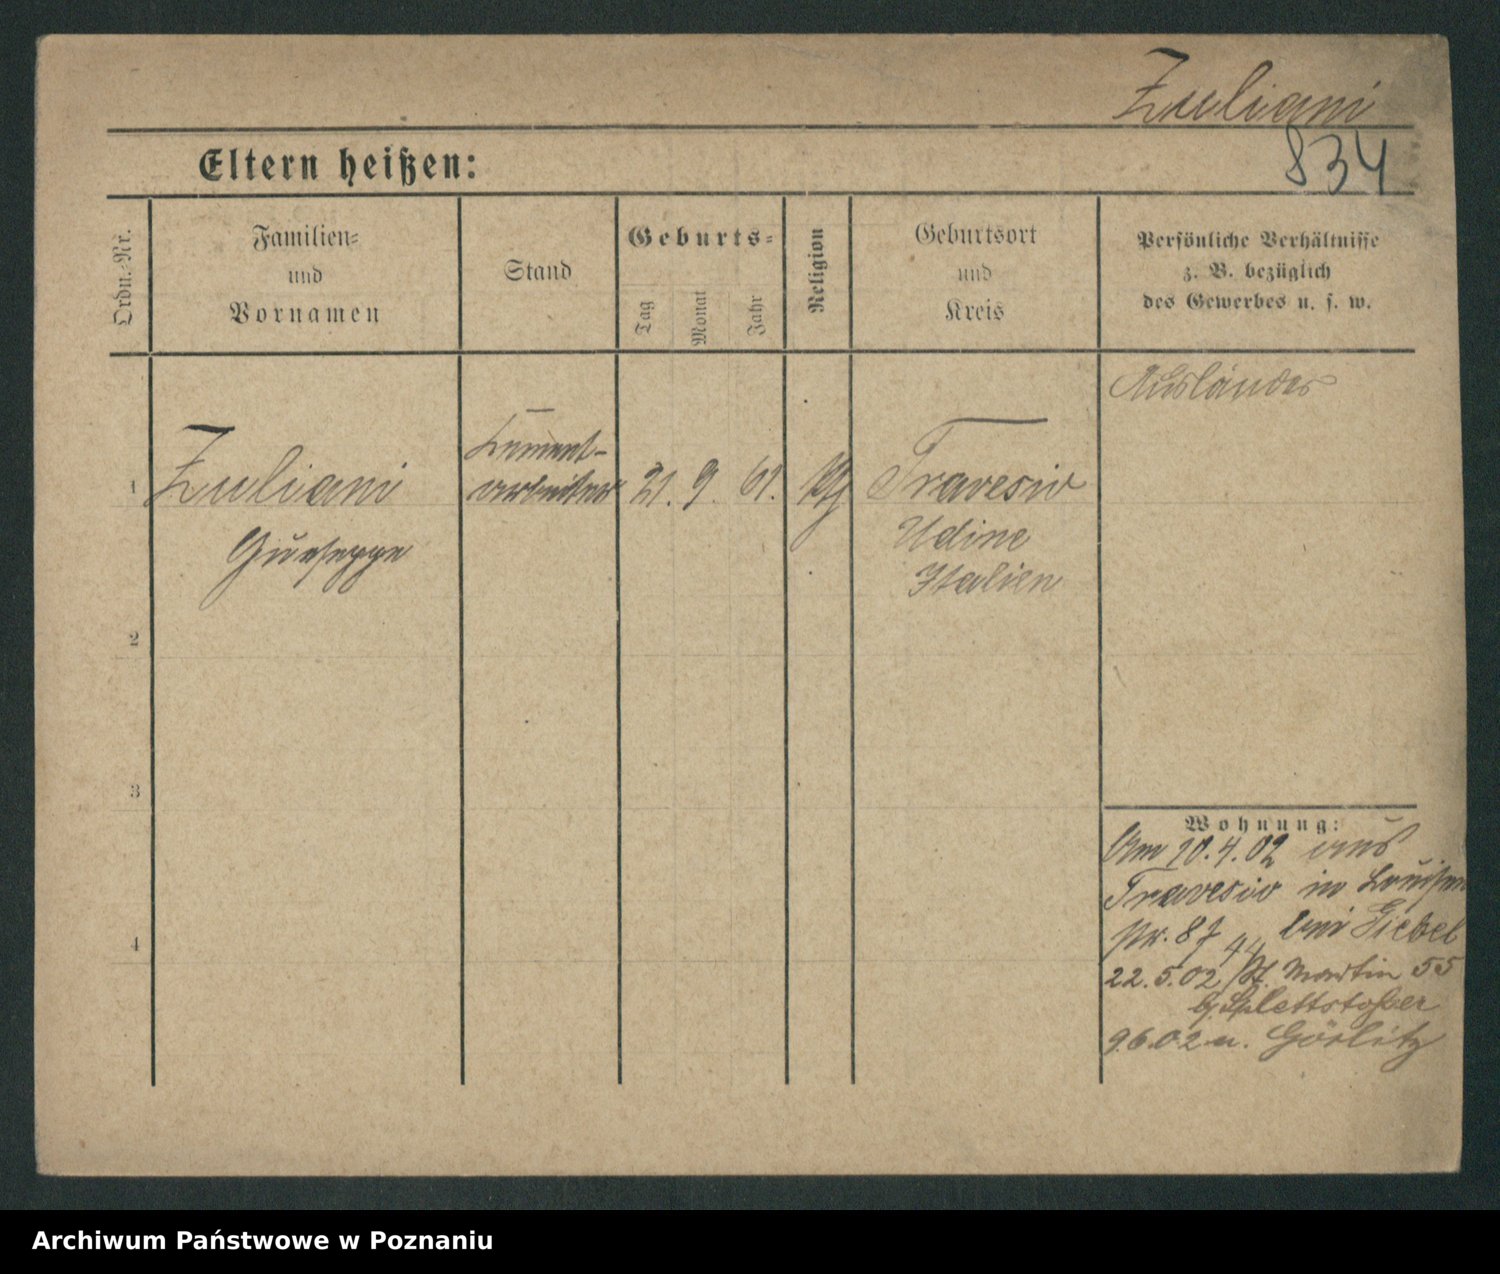 Zuliani
834
Eltern heißen:
Ordn.-Nr.
Familien-
und
Vornamen
Stand
Geburts-
Tag
Monat
Jahr
Religion
Geburtsort
und
Kreis
Persönliche Verhältnisse
z. B. bezüglich
des Gewerbes u. s. w.
Ausländer
1 Zuliani arbeiter 21. 9. 61. Travesio
Udine
Italien
2
3
4
Wohnung:
Am 10.4.02 aus
Travesio in Louisen
Nr. 87 bei Giebel
22.5.02 St. Martin 55
Splettstoßer
9.6.02 n. Görlitz
Archiwum Państwowe w Poznaniu